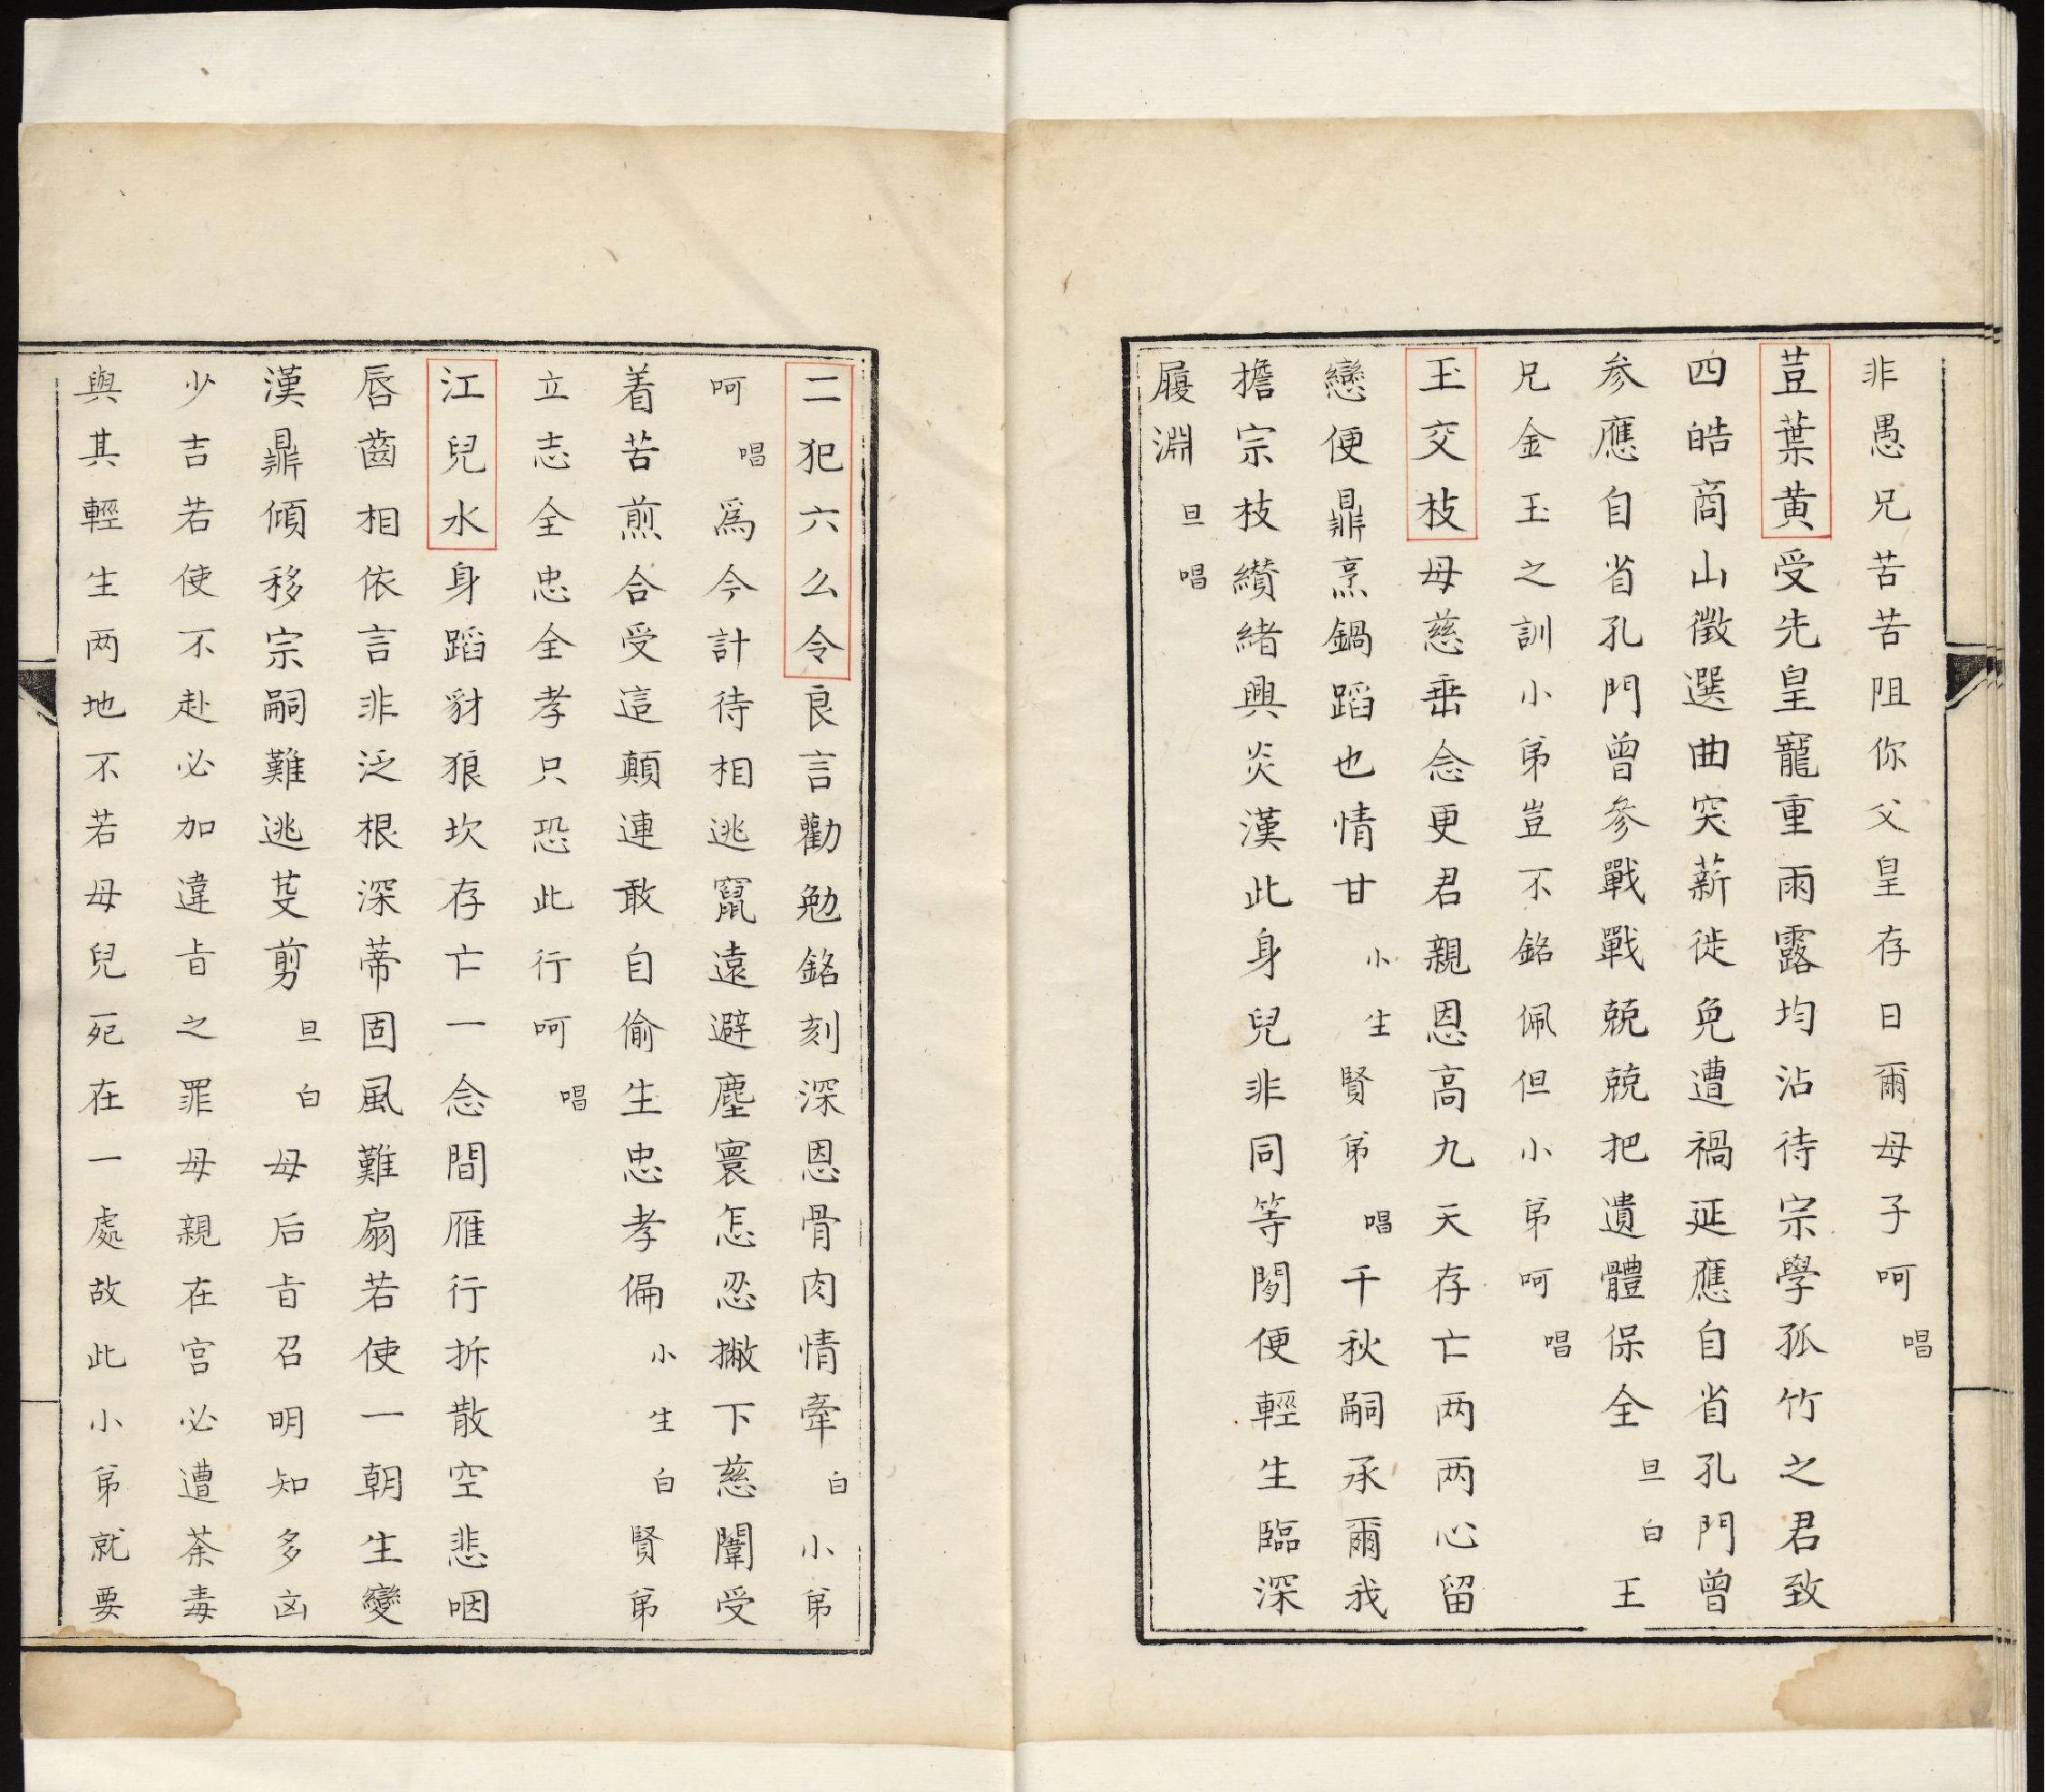 非愚兄苦苦阻你父皇存日爾母子呵唱
荳葉黄受先皇寵重雨露均沾待宗學孤竹之君致
四皓商山徵選曲突薪徙免遭禍延應自省孔門曾
参應自省孔門曾參戰戰兢兢把遺體保全旦白王
兄金玉之訓小弟豈不銘佩但小弟呵唱
玉交枝母慈垂念更君親恩高九天存亡两两心留
戀便鼎烹鍋蹈也情甘小生賢弟唱千秋嗣承爾我
擔宗枝纘緒興炎漢此身兒非同等閒便輕生臨深
履淵旦唱
二犯六么令良言勸勉銘刻深恩骨肉情牽白小弟
呵唱爲今計待相逃竄遠避塵寰怎忍撇下慈闈受
着苦煎合受這顛連敢自偷生忠孝偏小生白賢弟
立志全忠全孝只恐此行呵唱
江兒水身蹈豺狼坎存亡一念間雁行拆散空悲咽
唇齒相依言非泛根深蒂固風難扇若使一朝生變
漢鼎傾移宗嗣難逃芟剪旦白母后旨召明知多凶
少吉若使不赴必加違旨之罪母親在宫必遭荼毒
與其輕生两地不若母兒死在一處故此小弟就要